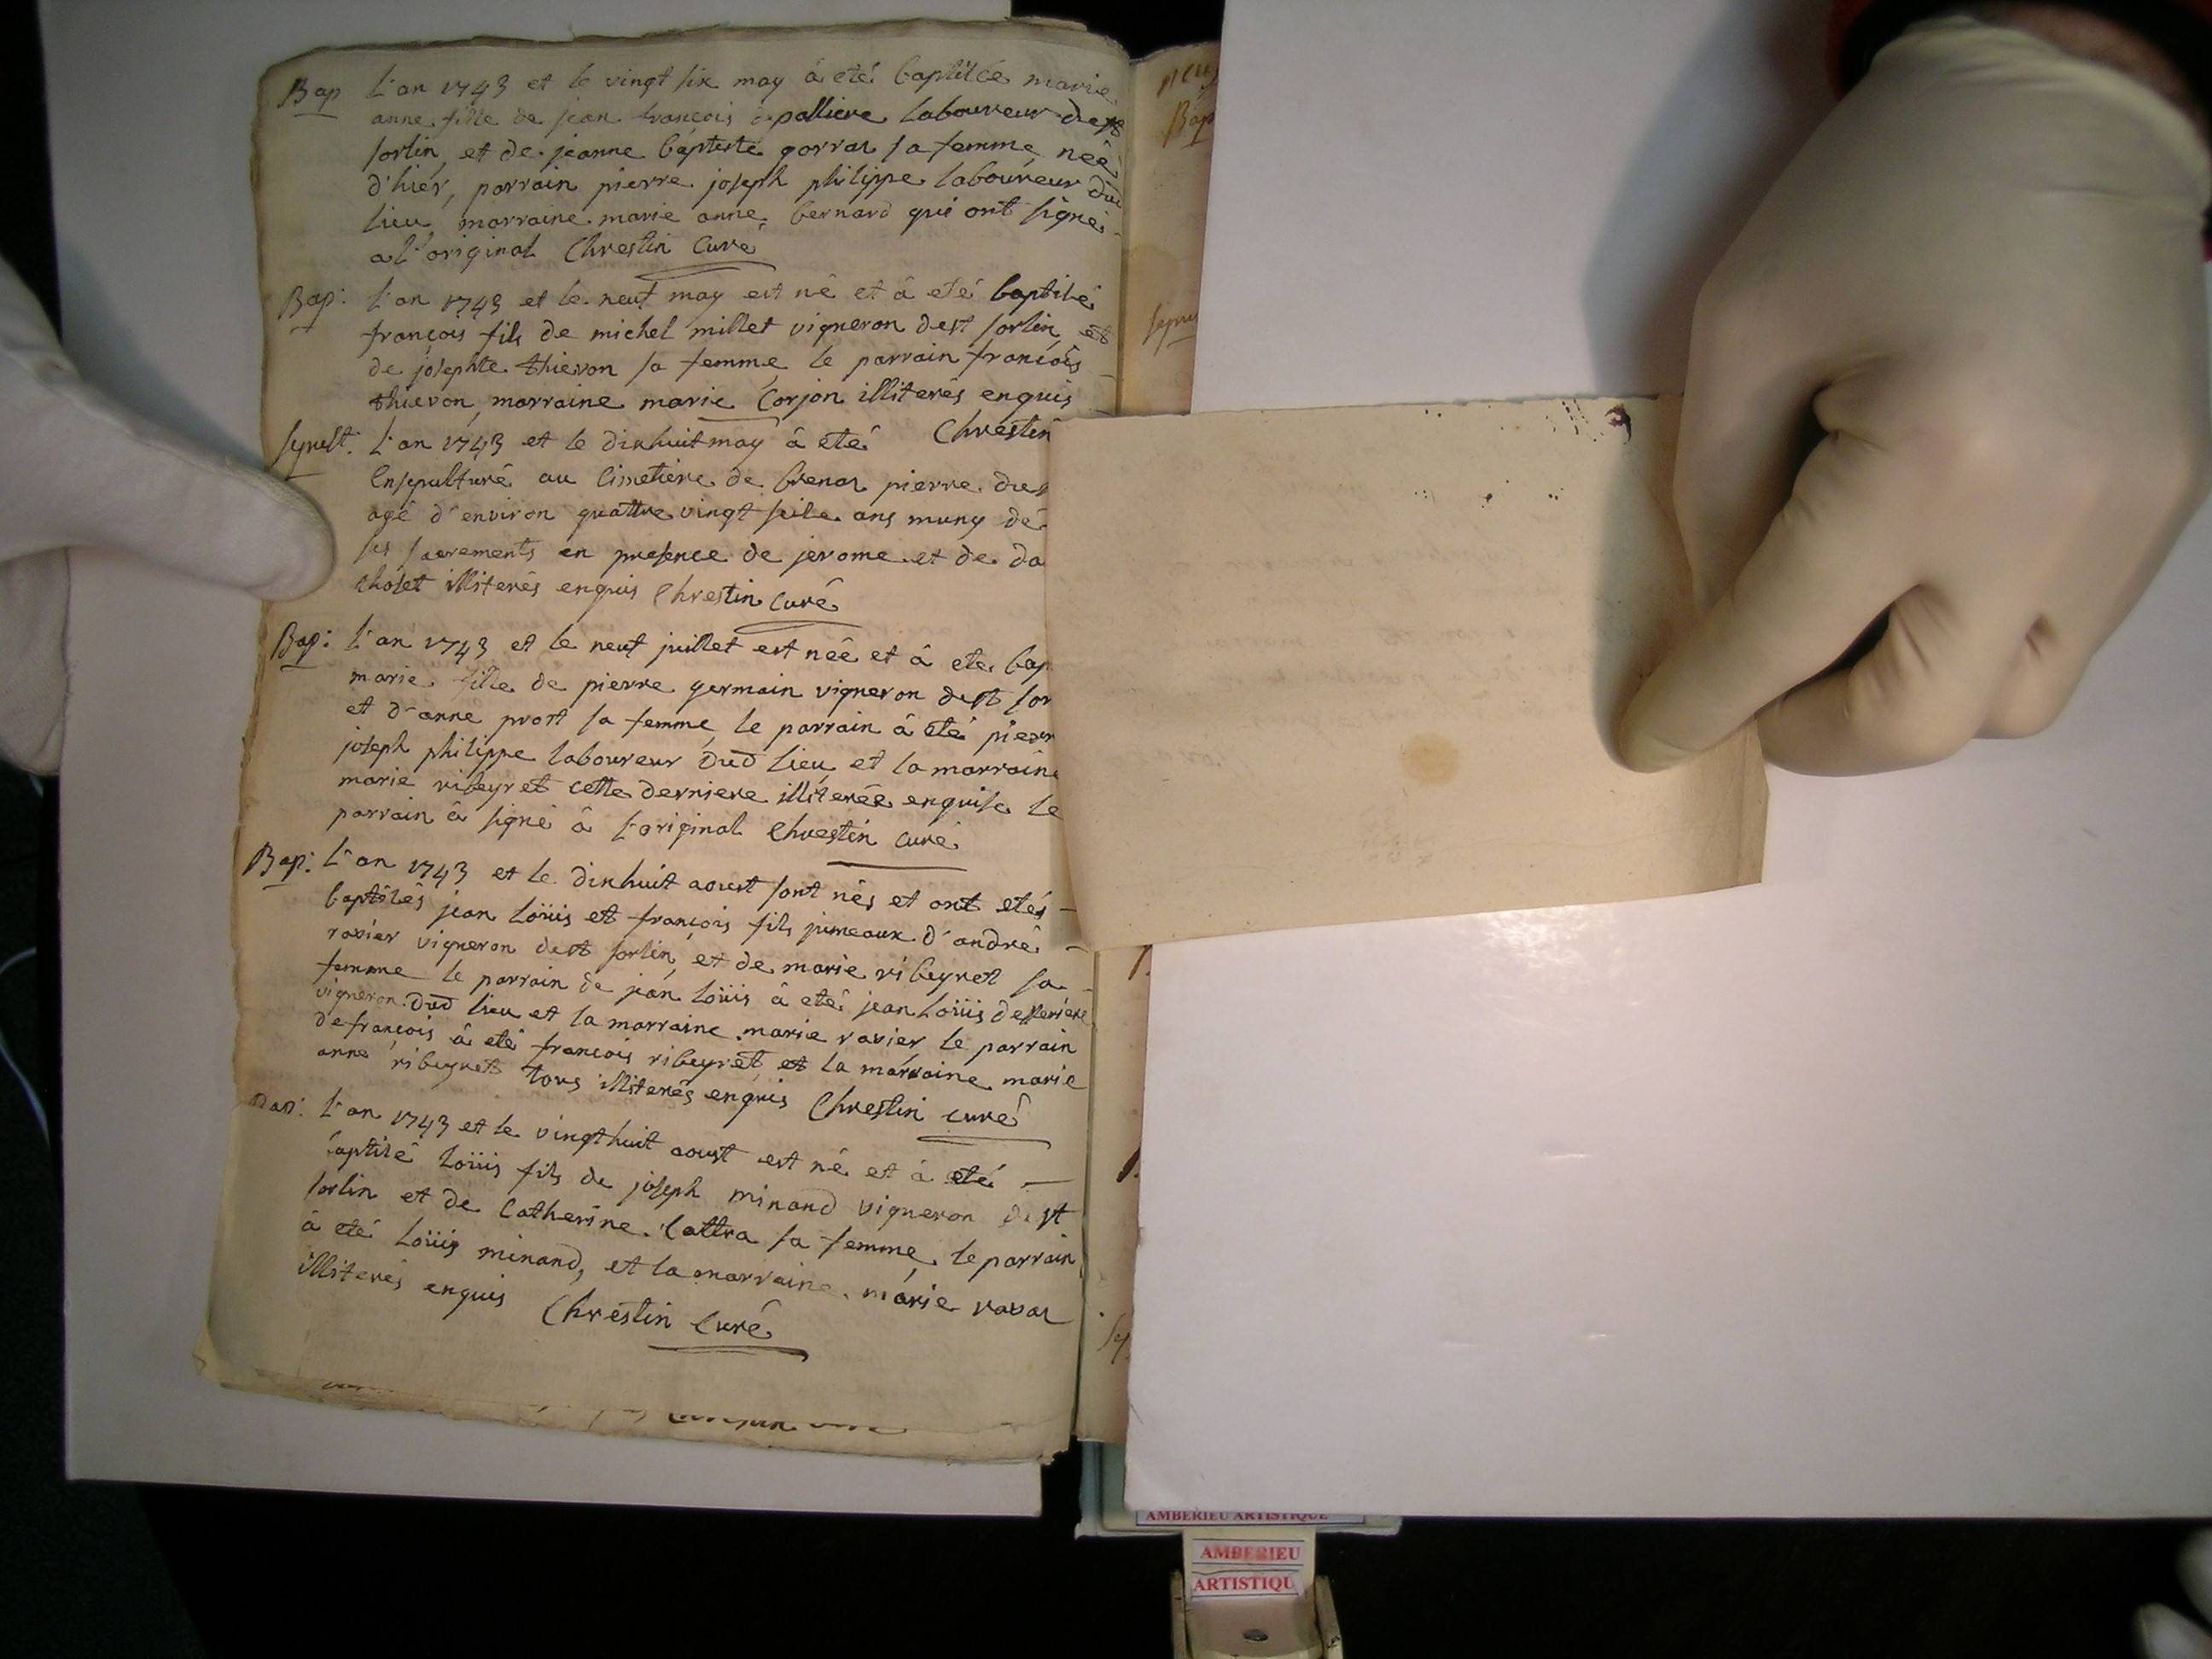 Bap L'an 1743 et le vingt six may â eté baptisée marie
anne fille de jean françois depalliere laboureur dest
sorlin, et de jeanne baptiste gorraz sa femme née
d'hier, parrain pierre joseph philippe laboureur dud
lieu, marraine marie anne bernard qui ont signé
a l'original Chrestin Curé
Bap: L'an 1743 et le neuf may est né et â eté baptisé
françois fils de michel millet vigneron dest sorlin, et
de josephte thievon sa femme, le parrain françois
thievon, marraine marie Corjon illiterés enquis
Chrestin
sepult: L'an 1743 et le dixhuit may â eté
Ensepulturé au Cimetiere de brenaz pierre
agé d'environ quattre vingt seize ans muny dé
ses sacrements en presence de jerome et de da
illiterés enquis Chrestin Curé
Bap: L'an 1743 et le neuf juillet est née et â eté bap
marie fille de pierre germain vigneron dest sor
et d'anne prost sa femme, le parrain â eté pierr
joseph philippe laboureur dud lieu, et la marraine
marie ribeyret cette derniere illiterée enquise le
parrain â signé â l'original Chrestin curé
Bap: L'an 1743 et le dixhuit aoust sont nés et ont etés
baptisés jean Loüis et françois fils jumeaux d'andré
ravier vigneron dest sorlin, et de marie ribeyret sa
femme le parrain de jean Loüis â eté jean Loüis
vigneron dud lieu et la marraine marie ravier, le parrain
de françois â eté françois ribeyret, et la marraine marie
anne ribeyret tous illiterés enquis Chrestin curé
Bap: L'an 1743 et le vingthuit aoust est né et â eté
baptisé Loüis fils de joseph minand vigneron dest
sorlin et de Catherine Cattra sa femme, le parrain
â eté Loüis minand, et la marraine marie ravaz
illiterés enquis Chrestin Curé
Bap
sepu
AMBERIEU ARTISTIQUE
AMBERIEU
ARTISTIQU